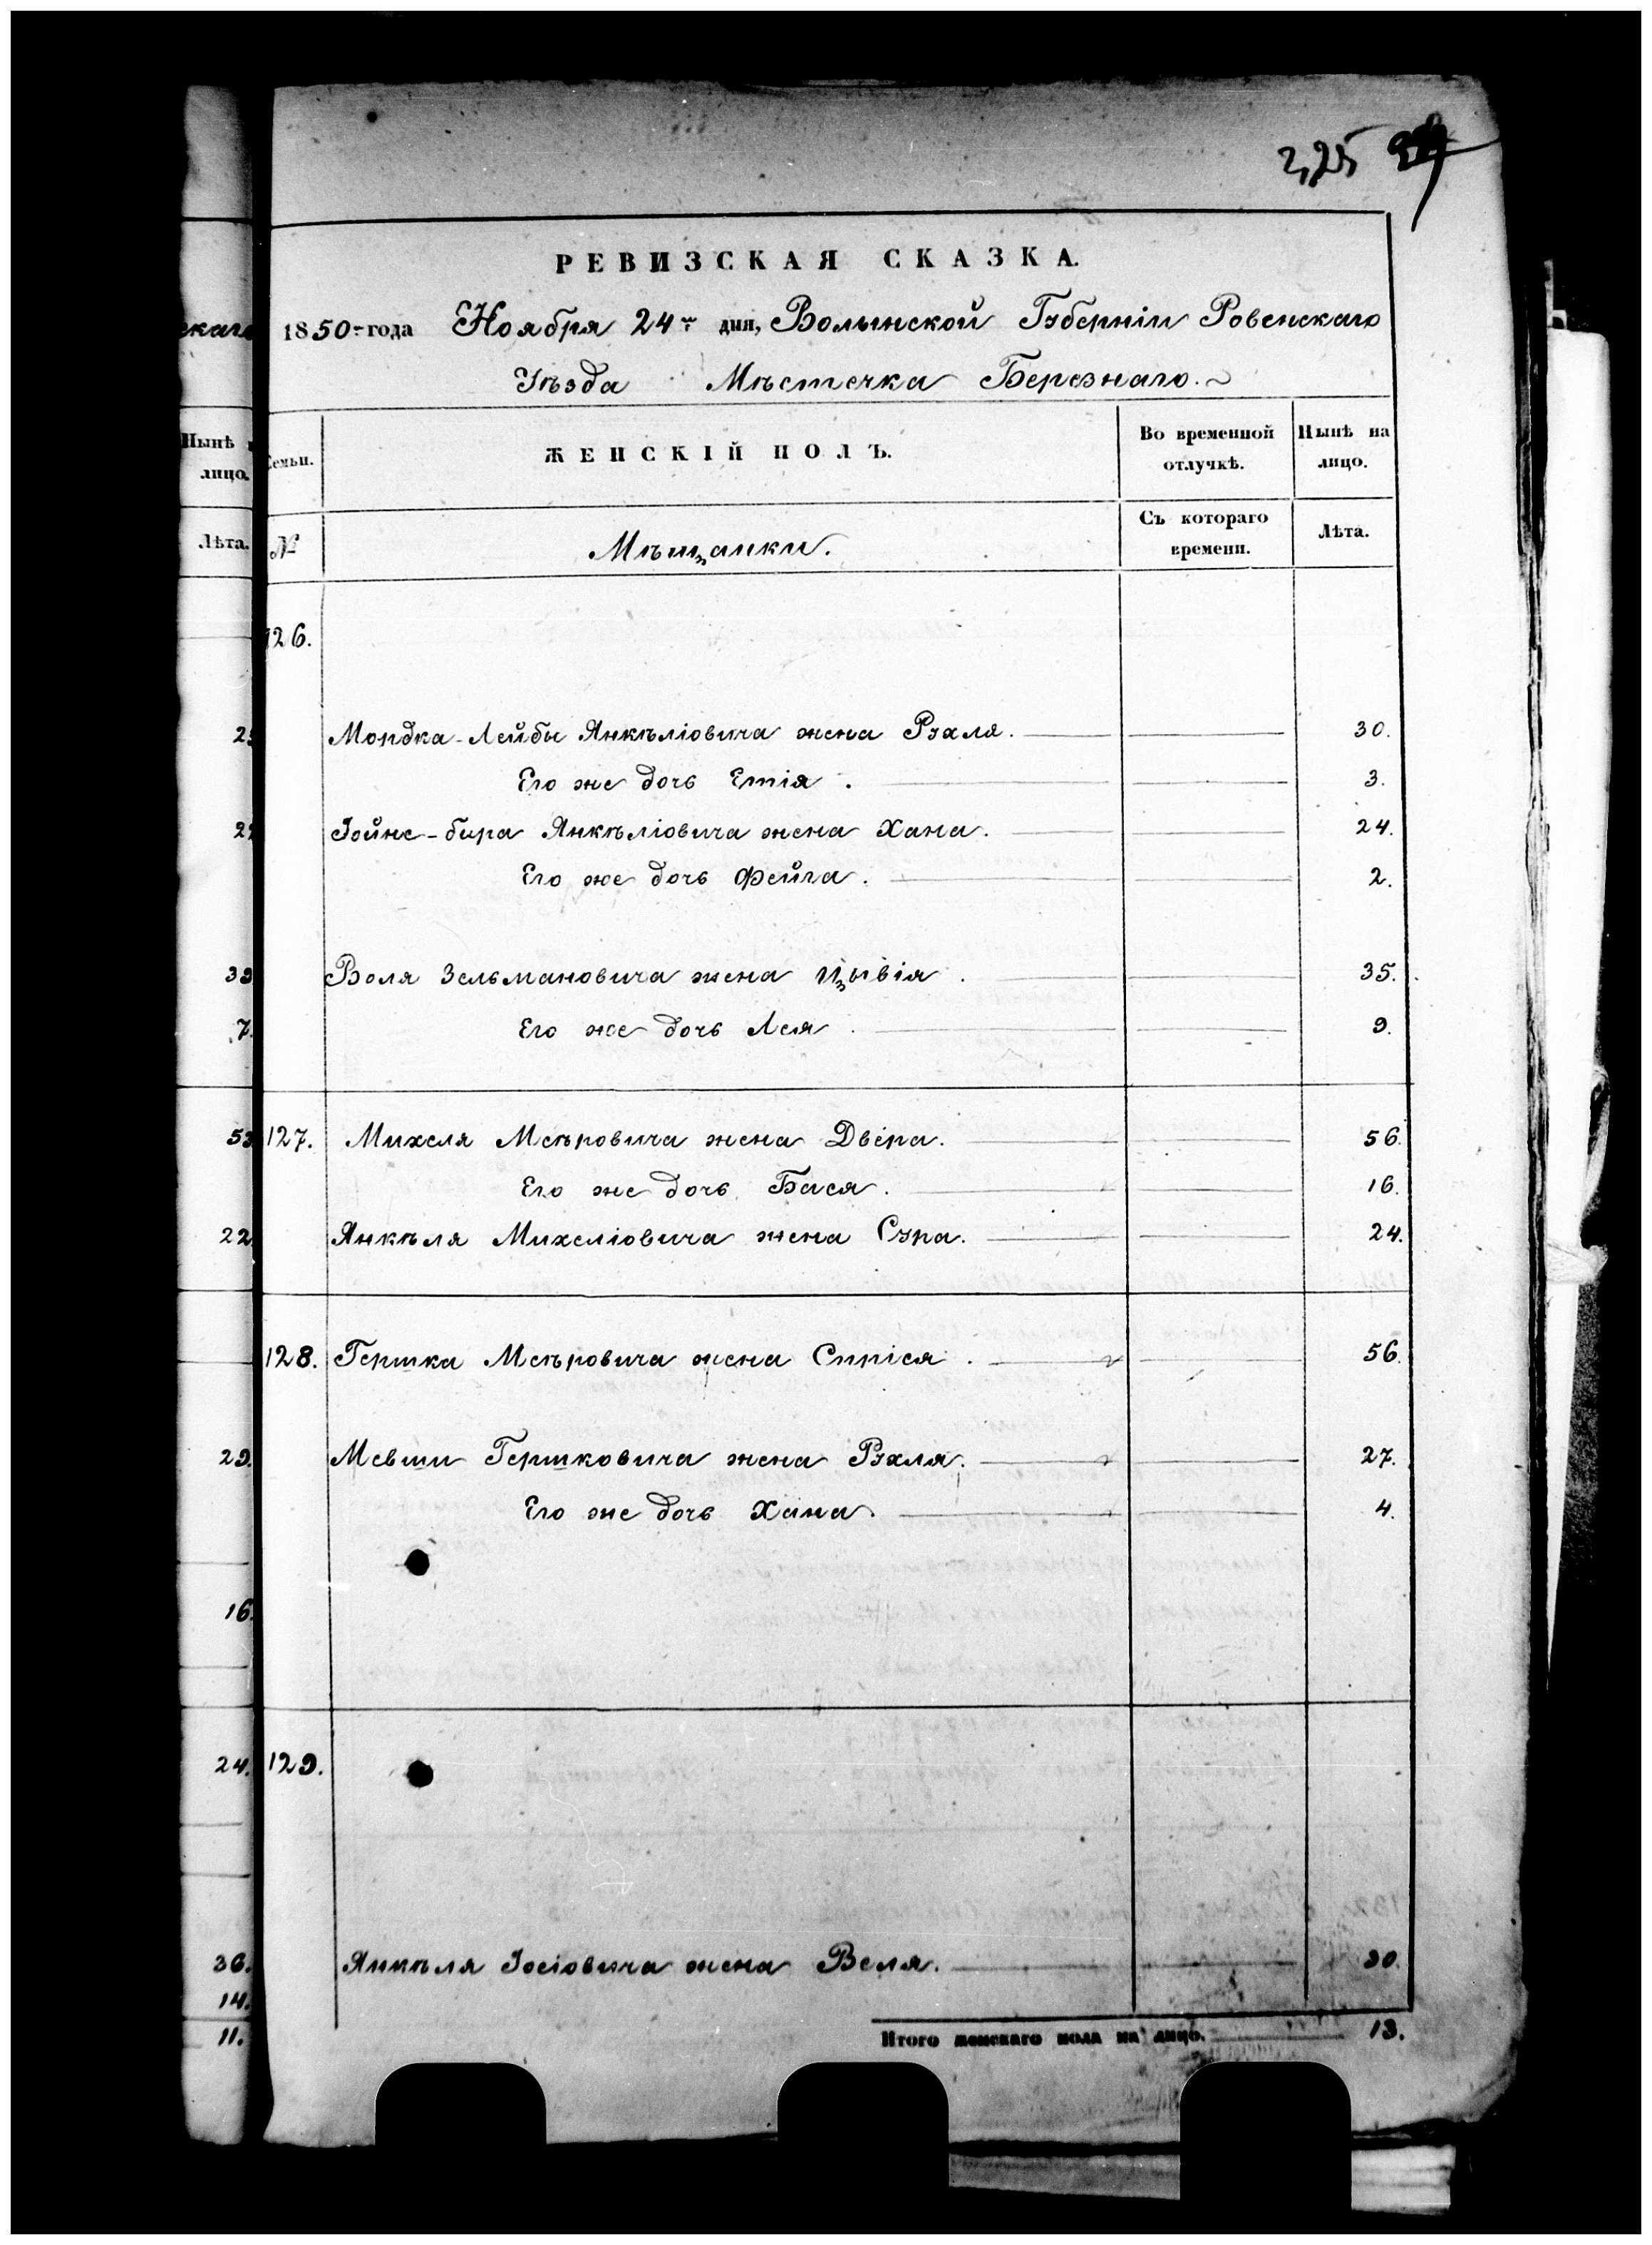 2,25
РЕВИЗСКАЯ СКАЗКА.
1850 года Ноября 24 дня, Волынской Губерніи Ровенскаго
Уѣзда Мѣстечка Березнаго.
скаго
Нынѣ
лицо.
Лѣта.
Семьи.
ЖЕНСКІЙ ПОЛЪ.
Во временной отлучкѣ.
Нынѣ на лицо.
№
Мѣщанки.
Съ котораго времени.
Лѣта.
126.
Мордка-Лейбы Янкѣліовича жена Рухля. 30.
Его же дочь Етія. 3.
Іойне-бира Янкѣліовича жена Хана. 24.
Его же дочь Фейга. 2.
Воля Зельмановича жена Цывія. 35.
Его же дочь Лея. 9.
127. Михеля Меѣровича жена Двера. 56.
Его же дочь Бася. 16.
Янкѣля Михеліовича жена Сура. 24.
128. Гершка Меѣровича жена Сипріся. 56.
Мевши Гершковича жена Рухля. 27.
Его же дочь Хана. 4.
129.
Янкѣля Іосіовича жена Веля. 30.
Итого женскаго пола на лицо. 13.
7.
22
29.
16.
24.
36.
14.
11.